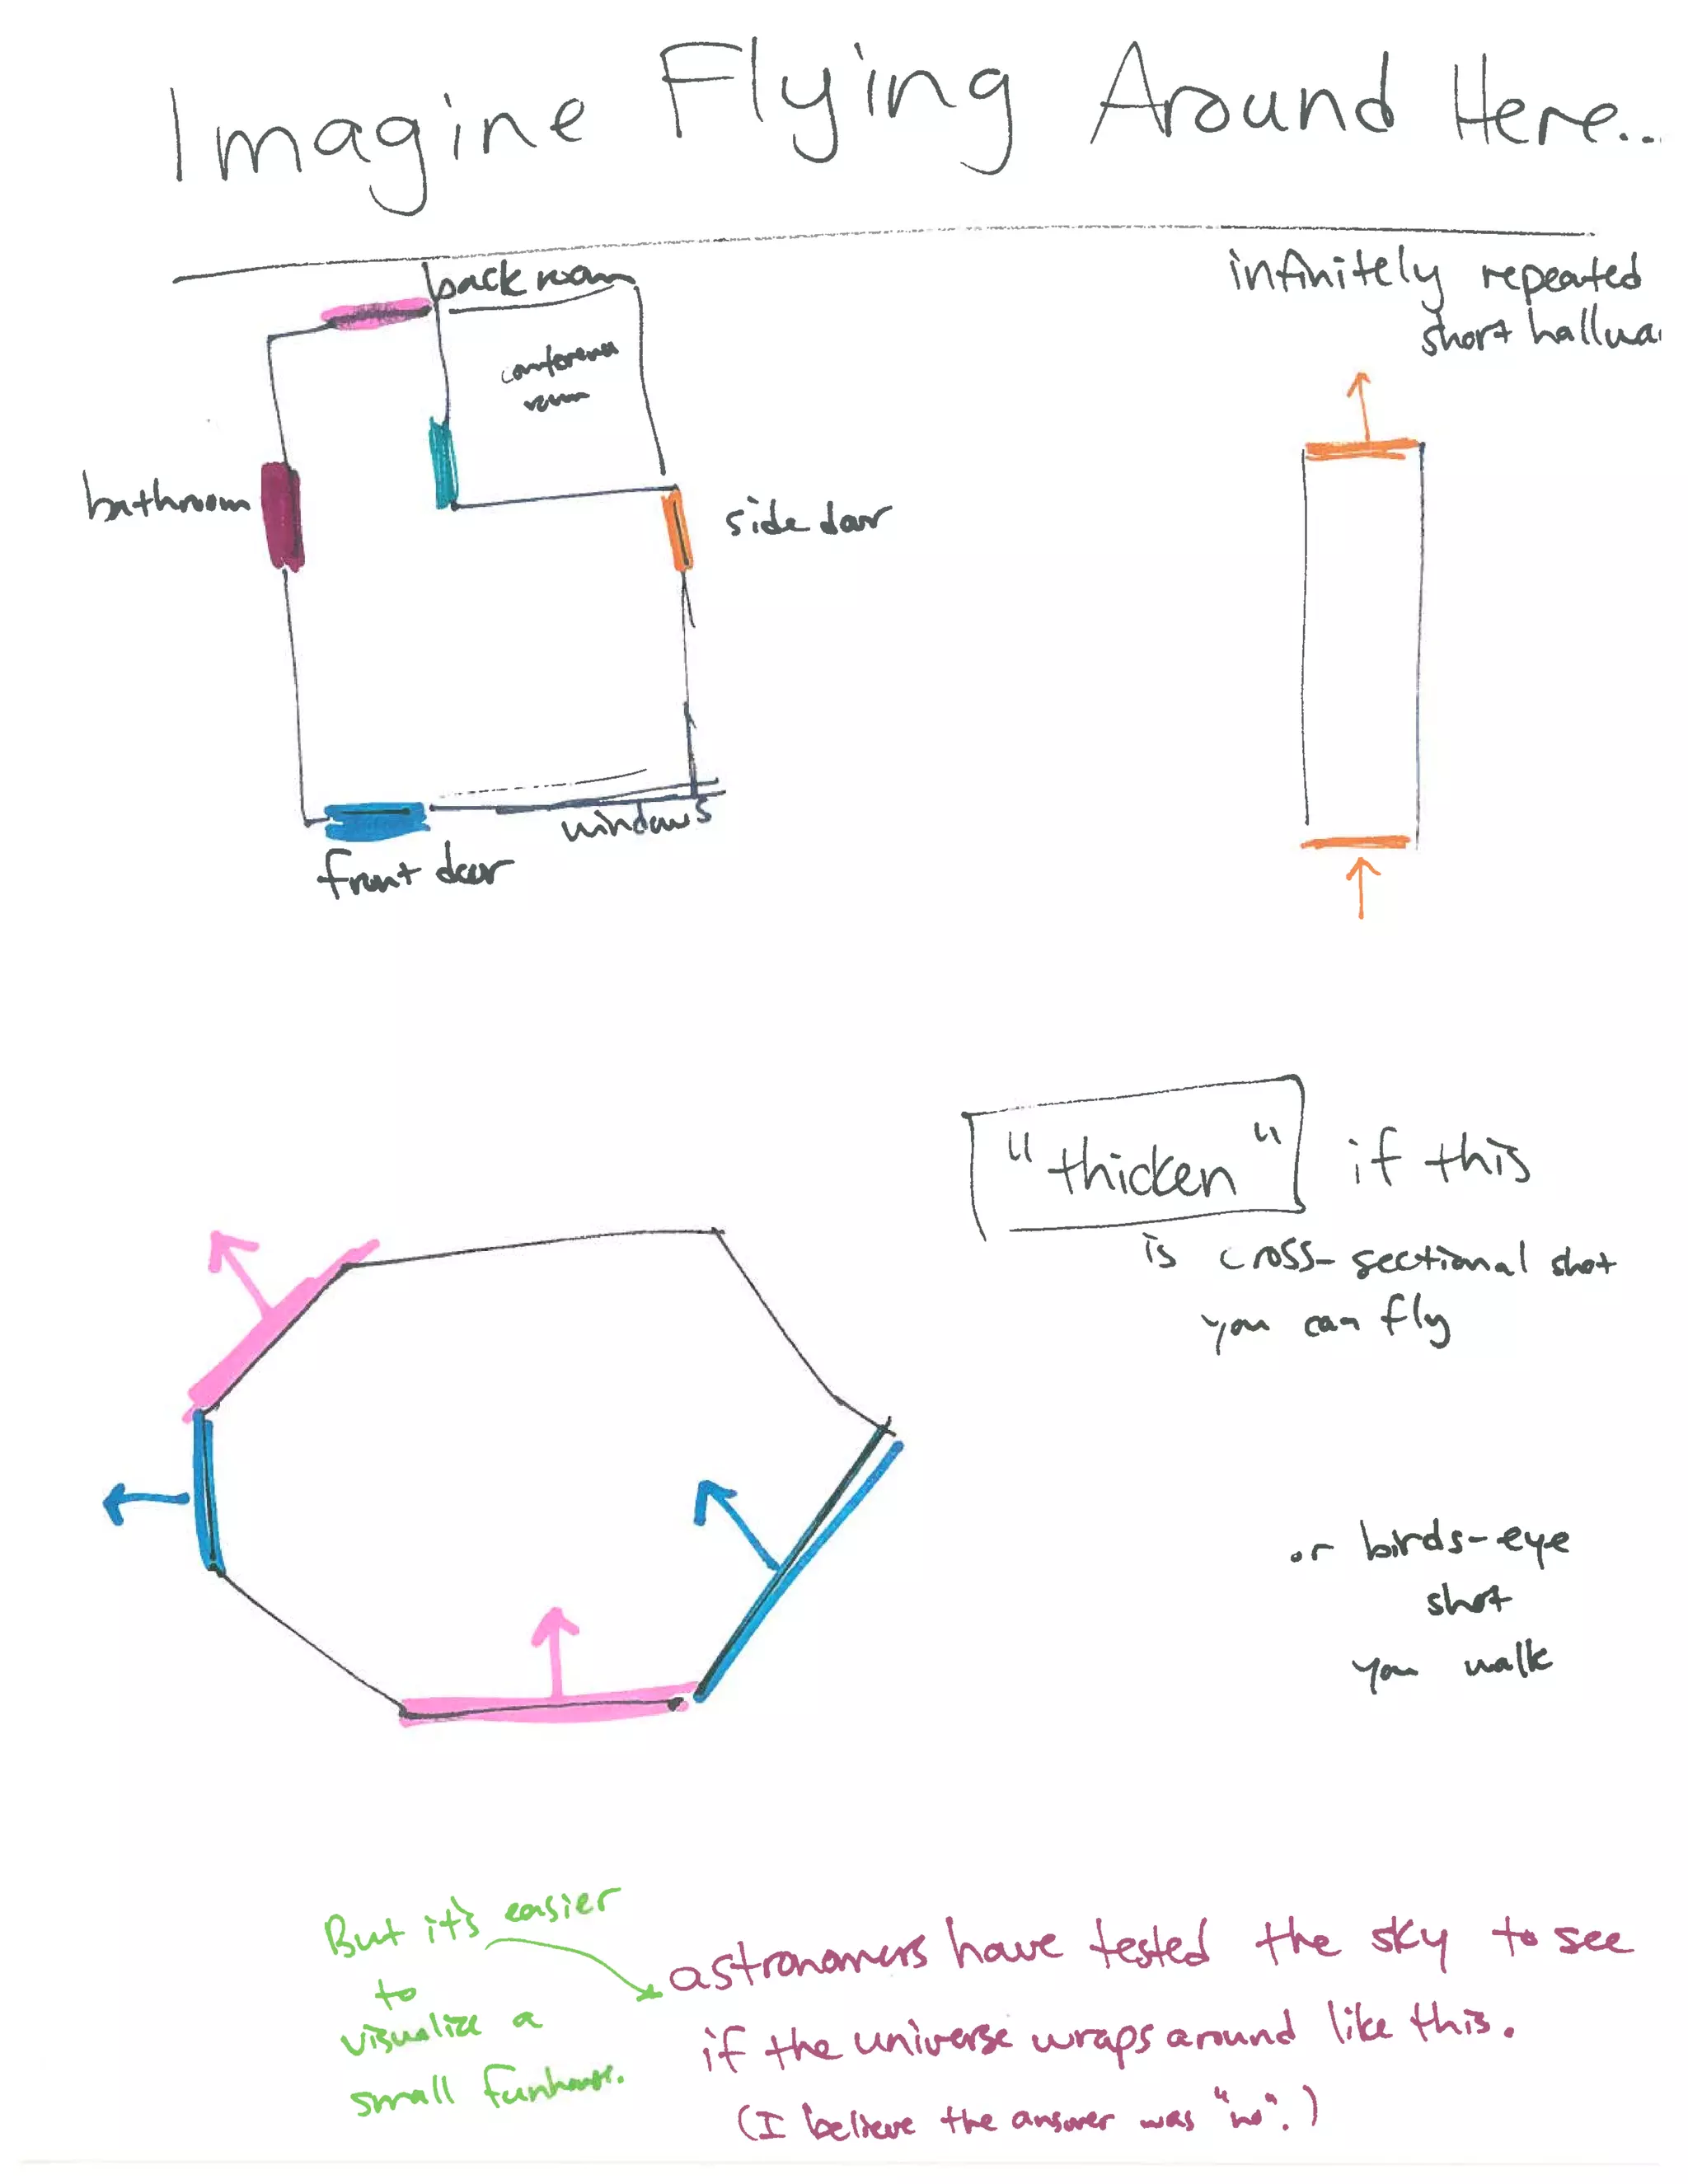 Imagine Flying Around Here...
back room
conference
room
bathroom
side door
windows
front door
infinitely repeated
short hallwa
"thicken" if this
is cross-sectional shot
you can fly
or birds-eye
shot
you walk
But it's easier
to
visualize a
small funhouse.
astronomers have tested the sky to see
if the universe wraps around like this.
(I believe the answer was "no".)